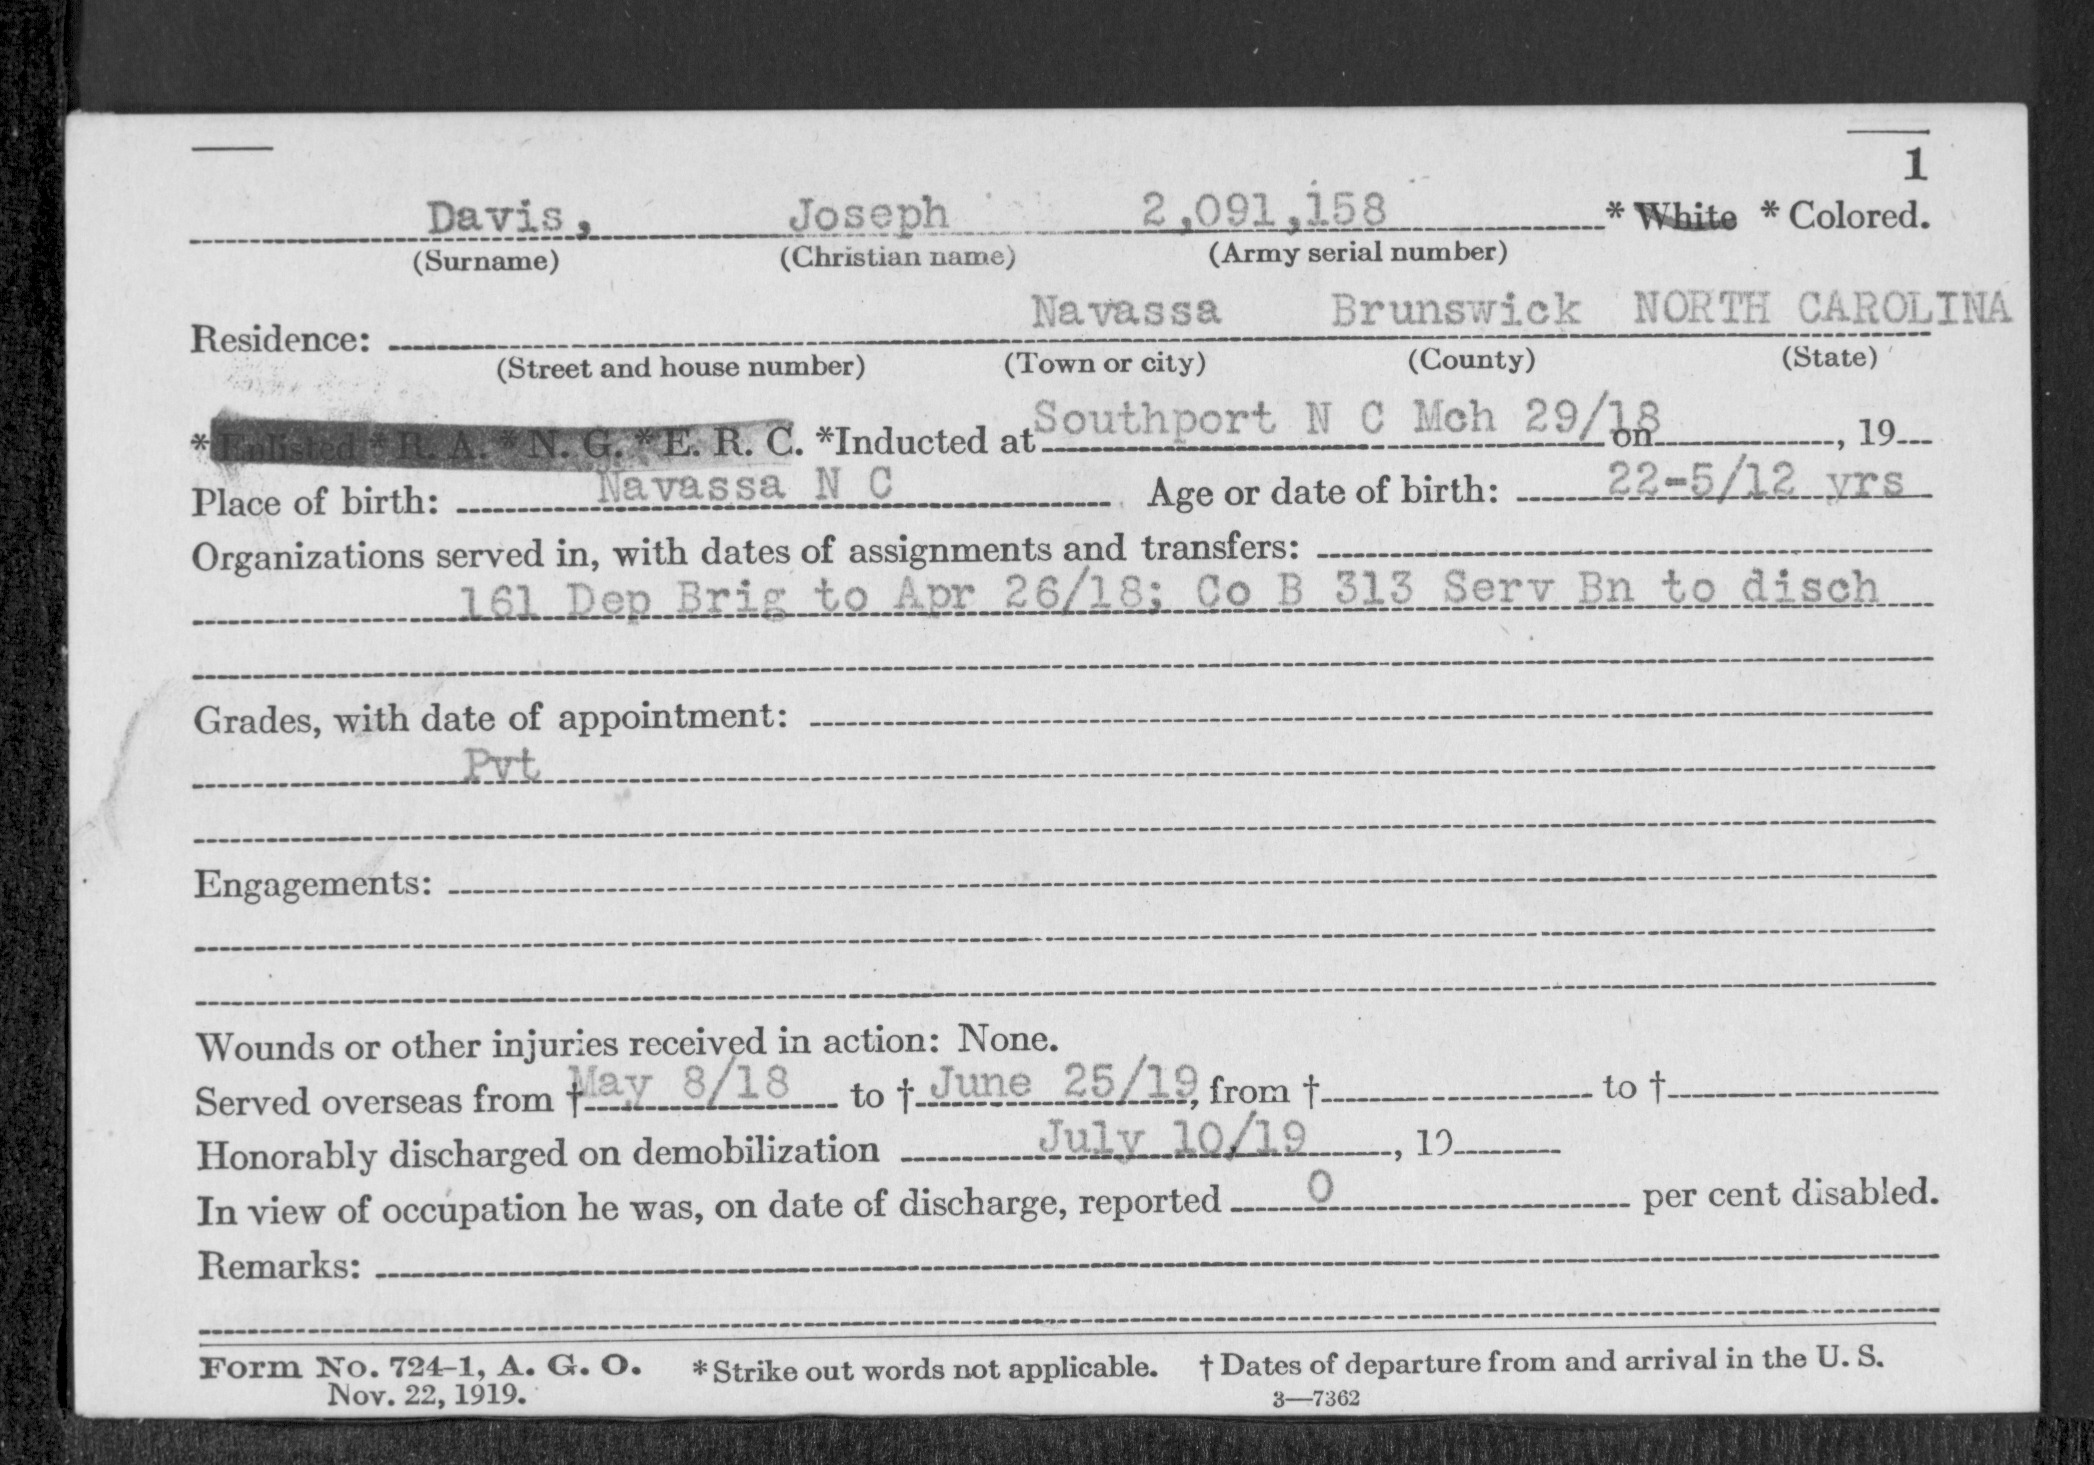 1
Davis, Joseph 2,091,158 * White * Colored.
(Surname) (Christian name) (Army serial number)
Navassa Brunswick NORTH CAROLINA
Residence:
(Street and house number) (Town or city) (County) (State)
Southport N C Mch 29/18
* Enlisted * R. A. * N. G. * E. R. C. *Inducted at on , 19
Place of birth: Navassa N C Age or date of birth: 22-5/12 yrs
Organizations served in, with dates of assignments and transfers:
161 Dep Brig to Apr 26/18; Co B 313 Serv Bn to disch
Grades, with date of appointment:
Pvt
Engagements:
Wounds or other injuries received in action: None.
Served overseas from † May 8/18 to † June 25/19, from † to †
Honorably discharged on demobilization July 10/19, 19
In view of occupation he was, on date of discharge, reported 0 per cent disabled.
Remarks:
Form No. 724-1, A. G. O. * Strike out words not applicable. † Dates of departure from and arrival in the U. S.
Nov. 22, 1919. 3—7362